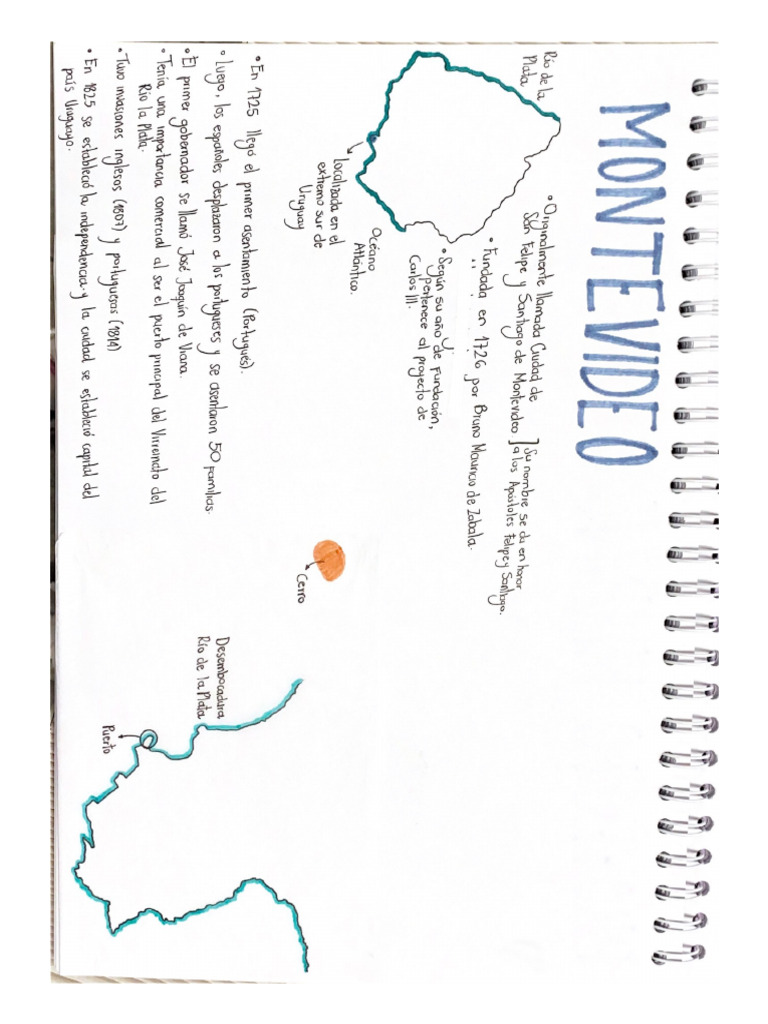 MONTEVIDEO
• Originalmente llamada Ciudad de
San Felipe y Santiago de Montevideo
] Su nombre se da en honor
a los Apóstoles Felipe y Santiago.
• Fundada en 1726 por Bruno Mauricio de Zabala.
• Según su año de Fundación,
pertenece al proyecto de
Carlos III.
Río de la
Plata
Océano
Atlántico.
Localizada en el
extremo sur de
Uruguay
• En 1725 llegó el primer asentamiento (Portugués).
• Luego, los españoles desplazaron a los portugueses y se asentaron 50 familias.
• El primer gobernador se llamó José Joaquín de Viana.
• Tenía una importancia comercial al ser el puerto principal del Virreinato del
Río la Plata.
• Tuvo invasiones inglesas (1807) y portuguesas (1814)
• En 1825 se estableció la independencia y la ciudad se estableció capital del
país Uruguayo.
Cerro
Desembocadura
Río de la Plata
Puerto